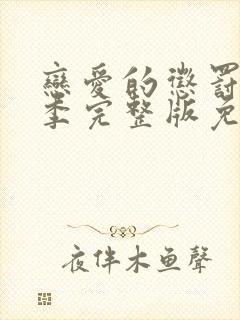 戀愛的懲罰
季完整版免
夜伴木鱼聲